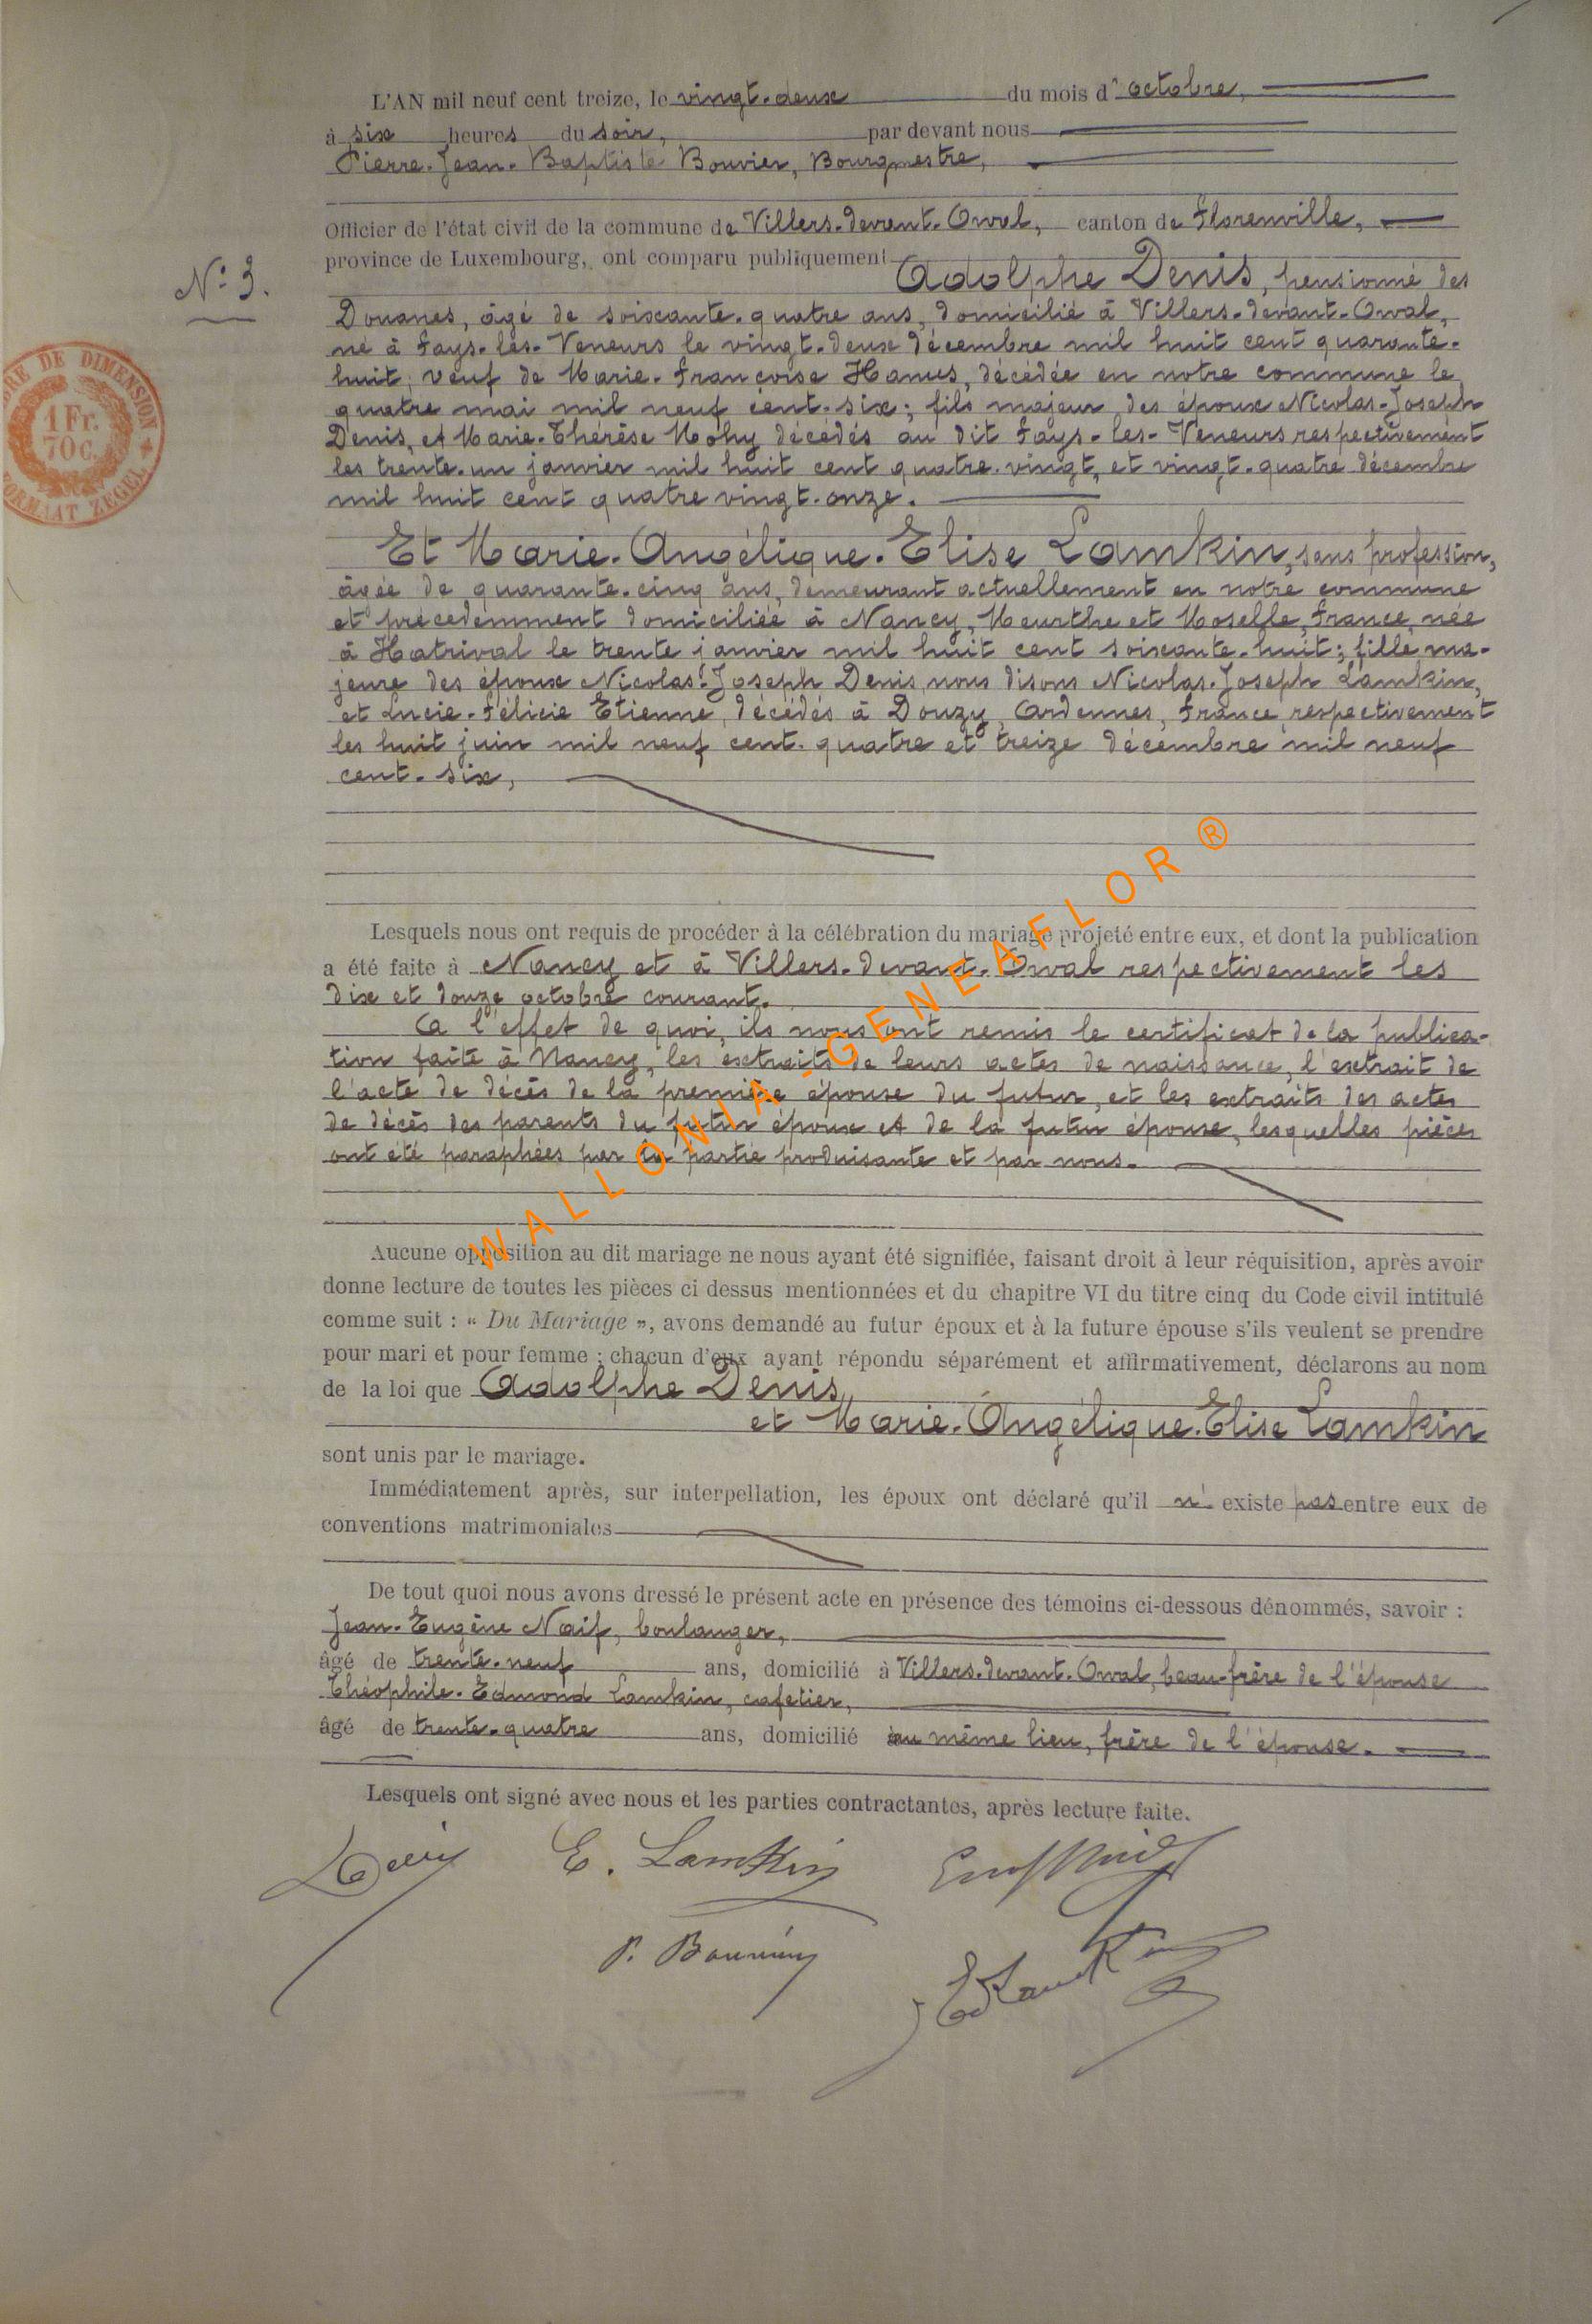 L'AN mil neuf cent treize, le vingt-deux du mois d'octobre,
à six heures du soir, par devant nous
Pierre-Jean-Baptiste Bouvier, Bourgmestre,
Officier de l'état civil de la commune de Villers-devant-Orval, canton de Florenville,
province de Luxembourg, ont comparu publiquement Adolphe Denis, pensionné des
N° 3.
Douanes, âgé de soixante-quatre ans, domicilié à Villers-devant-Orval,
né à Fays-les-Veneurs le vingt-deux décembre mil huit cent quarante-
huit; veuf de Marie-Françoise Hanus, décédée en notre commune le
quatre mai mil neuf cent-six; fils majeur des époux Nicolas-Joseph
Denis, et Marie-Thérèse Mohy décédés au dit Fays-les-Veneurs respectivement
les trente-un janvier mil huit cent quatre-vingt, et vingt-quatre décembre
mil huit cent quatre vingt-onze.
TIMBRE DE DIMENSION
1 Fr.
70c.
FORMAAT ZEGEL
Et Marie-Angélique-Elise Lamkin, sans profession,
âgée de quarante-cinq ans, demeurant actuellement en notre commune
et précedemment domiciliée à Nancy, Meurthe et Moselle, France, née
à Hatrival le trente janvier mil huit cent soixante-huit; fille ma-
jeure des époux Nicolas-Joseph Denis, nous disons Nicolas-Joseph Lamkin,
et Lucie-Félicie Etienne, décédés à Douzy, Ardennes, France respectivement
les huit juin mil neuf cent-quatre et treize décembre mil neuf
cent-six,
Lesquels nous ont requis de procéder à la célébration du mariage projeté entre eux, et dont la publication
a été faite à Nancy et à Villers-devant-Orval respectivement les
dix et douze octobre courant.
A l'effet de quoi, ils nous ont remis le certificat de la publica-
tion faite à Nancy, les extraits de leurs actes de naissance, l'extrait de
l'acte de décès de la première épouse du futur, et les extraits des actes
de décès des parents du futur époux et de la futur épouse, lesquelles pièces
ont été paraphées par la partie produisante et par nous.
WALLONIA-GENEAFLOR ®
Aucune opposition au dit mariage ne nous ayant été signifiée, faisant droit à leur réquisition, après avoir
donne lecture de toutes les pièces ci dessus mentionnées et du chapitre VI du titre cinq du Code civil intitulé
comme suit : « Du Mariage », avons demandé au futur époux et à la future épouse s'ils veulent se prendre
pour mari et pour femme ; chacun d'eux ayant répondu séparément et affirmativement, déclarons au nom
de la loi que Adolphe Denis
et Marie-Angélique-Elise Lamkin
sont unis par le mariage.
Immédiatement après, sur interpellation, les époux ont déclaré qu'il n' existe pas entre eux de
conventions matrimoniales
De tout quoi nous avons dressé le présent acte en présence des témoins ci-dessous dénommés, savoir :
Jean-Eugène Naif, boulanger,
âgé de trente-neuf ans, domicilié à Villers-devant-Orval, beau-frère de l'épouse
Théophile-Edmond Lamkin, cafetier,
âgé de trente-quatre ans, domicilié au même lieu, frère de l'épouse.
Lesquels ont signé avec nous et les parties contractantes, après lecture faite.
Denis E. Lamkin
P. Bouvier
Ed Lamkin